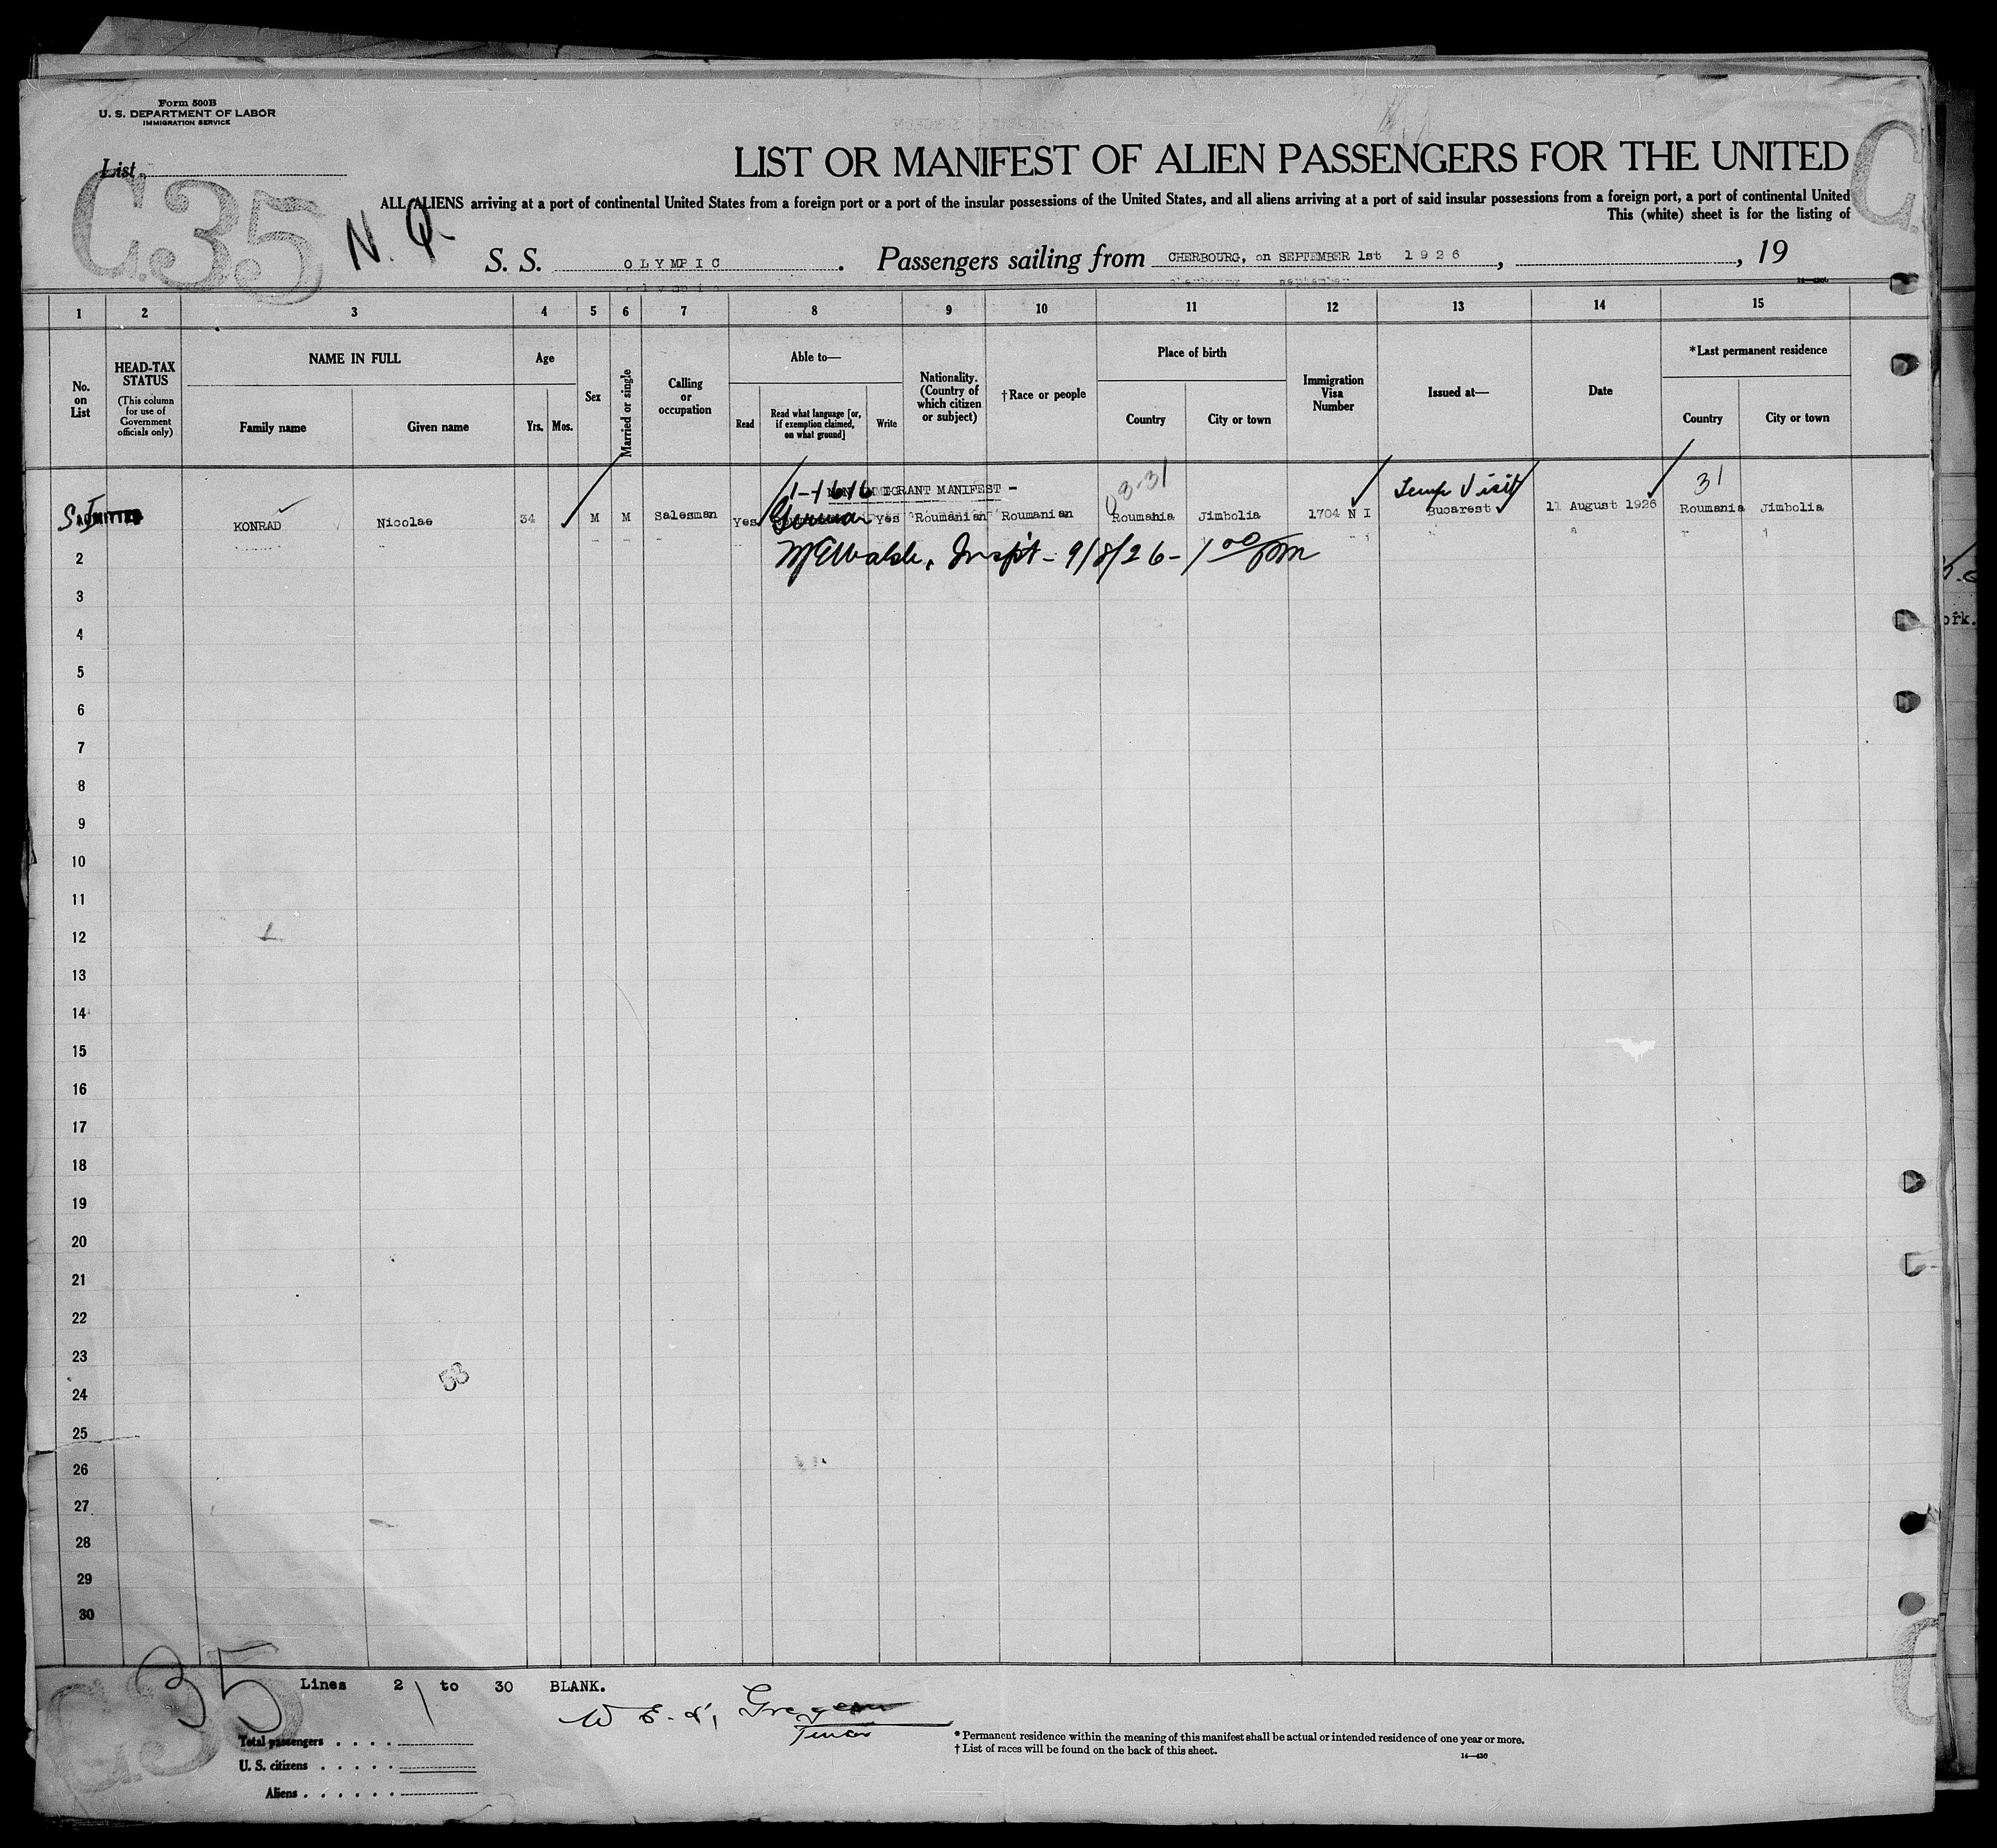 Form 500B
U. S. DEPARTMENT OF LABOR
IMMIGRATION SERVICE
List
C.35
N. Q.
LIST OR MANIFEST OF ALIEN PASSENGERS FOR THE UNITED
ALL ALIENS arriving at a port of continental United States from a foreign port or a port of the insular possessions of the United States, and all aliens arriving at a port of said insular possessions from a foreign port, a port of continental United
This (white) sheet is for the listing of
S. S. OLYMPIC. Passengers sailing from CHERBOURG, on SEPTEMBER 1st 1926, , 19
1 2 3 4 5 6 7 8 9 10 11 12 13 14 15
No. on List
HEAD-TAX STATUS
(This column for use of Government officials only)
NAME IN FULL
Family name
Given name
Age
Yrs.
Mos.
Sex
Married or single
Calling or occupation
Able to—
Read
Read what language [or, if exemption claimed, on what ground]
Write
Nationality. (Country of which citizen or subject)
†Race or people
Place of birth
Country
City or town
Immigration Visa Number
Issued at—
Date
*Last permanent residence
Country
City or town
IMMIGRANT MANIFEST -
3-31
Temp Visit
31
ADMITTED KONRAD Nicolae 34 M M Salesman Yes German Yes Roumanian Roumanian Roumania Jimbolia 1704 N I Bucarest 11 August 1926 Roumania Jimbolia
Inspt - 9/8/26 - 1 00 pm
2
3
4
5
6
7
8
9
10
11
12
13
14
15
16
17
18
19
20
21
22
23
53
24
25
26
27
28
29
30
35
C.35
Lines 2 to 30 BLANK.
Total passengers
U. S. citizens
Aliens
* Permanent residence within the meaning of this manifest shall be actual or intended residence of one year or more.
† List of races will be found on the back of this sheet.
14—430
ork.